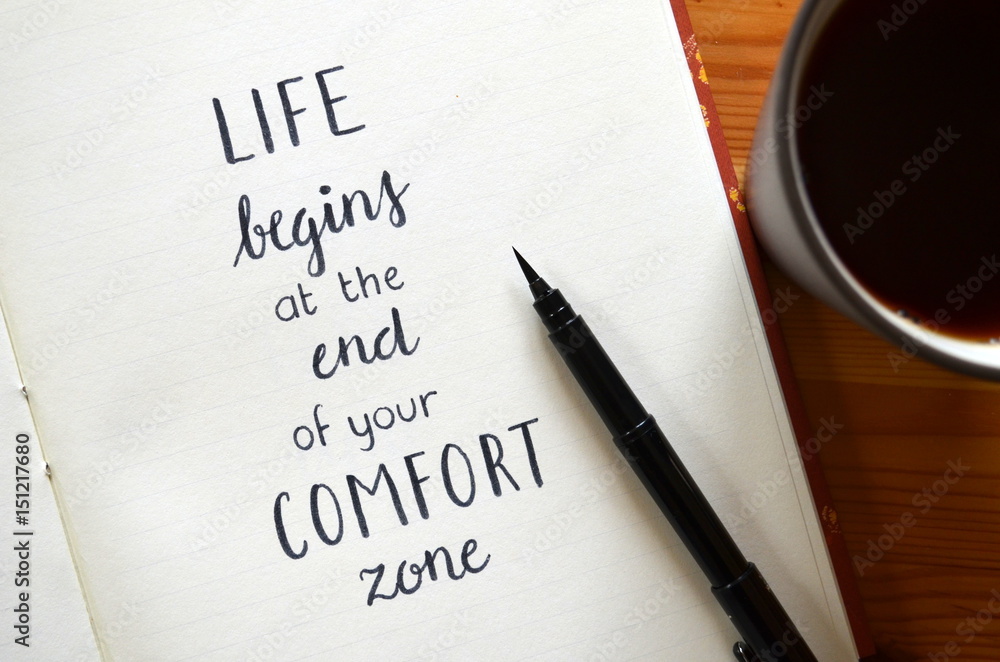 LIFE
begins
at the
end
of your
COMFORT
zone
Adobe Stock | #151217680